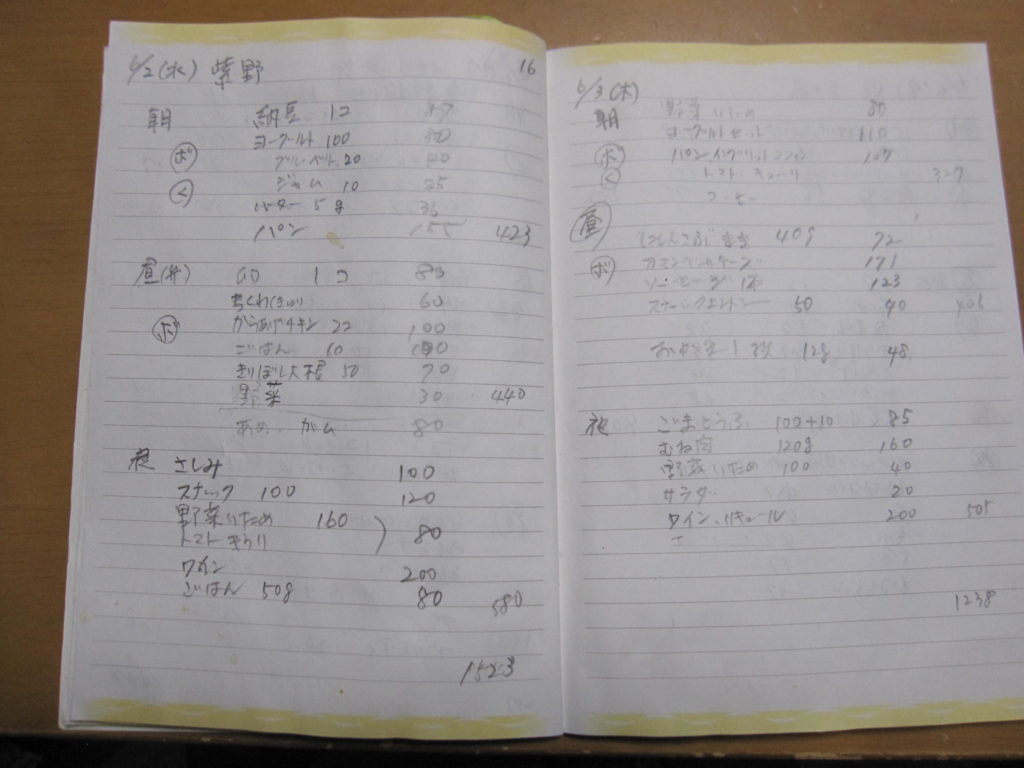 6/2(水) 紫野 16
朝 納豆 1コ 87
ヨーグルト 100 80
ボ ブルーベリー 20 40
く ジャム 10 25
バター 5g 36
パン 155 423
昼(弁) 1コ 80
ちくわきゅうり 60
ボ からあげチキン 22 100
ごはん 60 100
きりぼし大根 50 70
野菜 30 440
あめ、ガム 80
夜 さしみ 100
スナック 100 120
野菜いため 160 80
トマト きうり
ワイン 200
ごはん 50g 80 580
1523
6/3(木)
朝 野菜いため 80
ヨーグルトセット 110
ボ パンイングリッシュマフィン 137
く トマト キューリ 327
コーヒー
昼 40g 72
ボ カマンベールチーズ 171
ソーセージ 1本 123
スナック 50 40 406
1枚 12g 48
夜 ごまとうふ 100+10 85
むね肉 120g 160
野菜いため 100 40
サラダ 20
ワイン、リキュール 200 505
1238